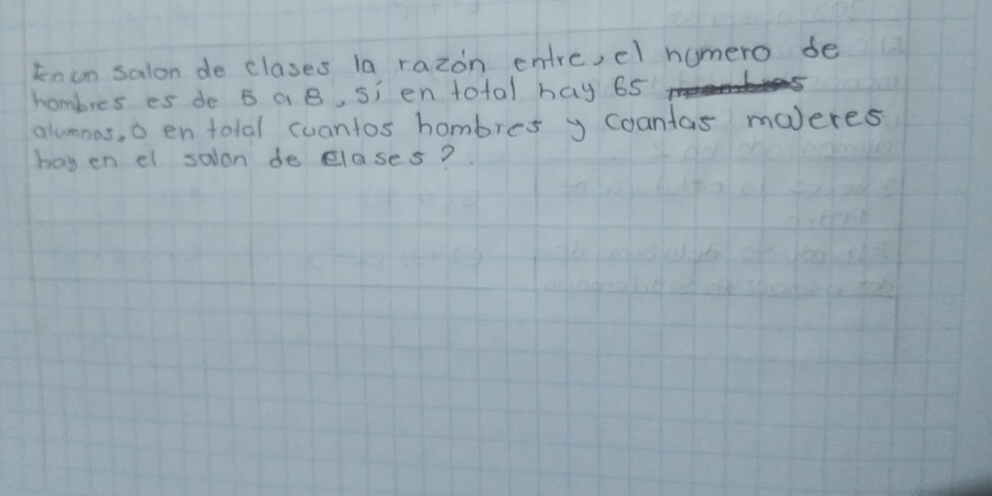 En un salon de clases la razón entre, el número de
hombres es de 5 a 8, si en total hay 65
alumnos, ó en total cuantos hombres y cuantas mujeres
hay en el salon de clases?